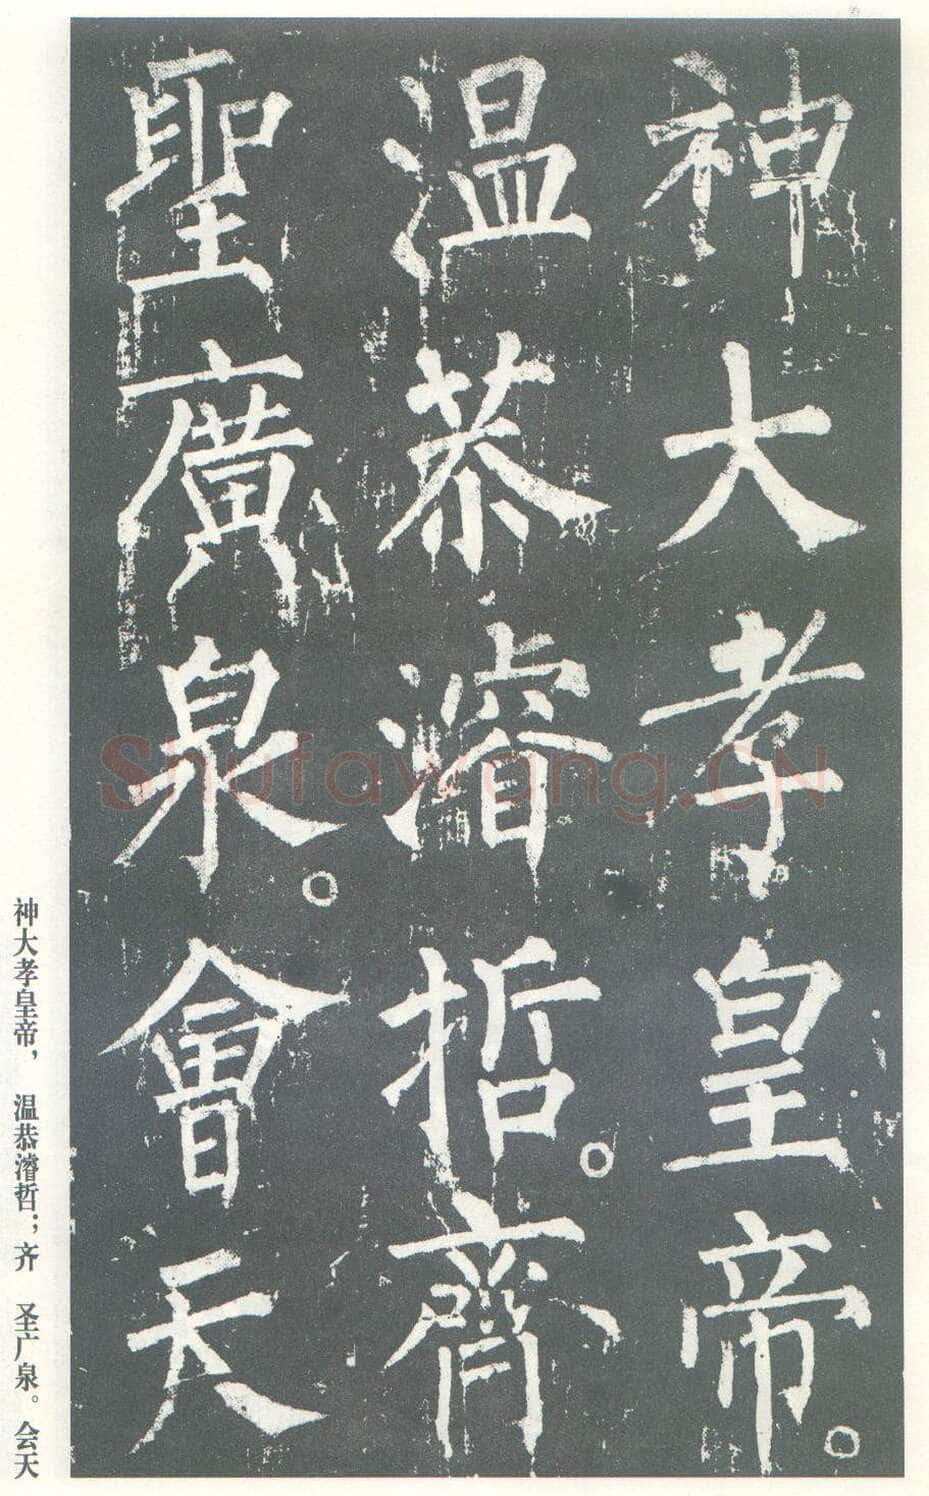 神大孝皇帝。
温恭濬哲。齊
聖廣泉。會天
神大孝皇帝，温恭濬哲；齐圣广泉。会天
Shufawang.CN